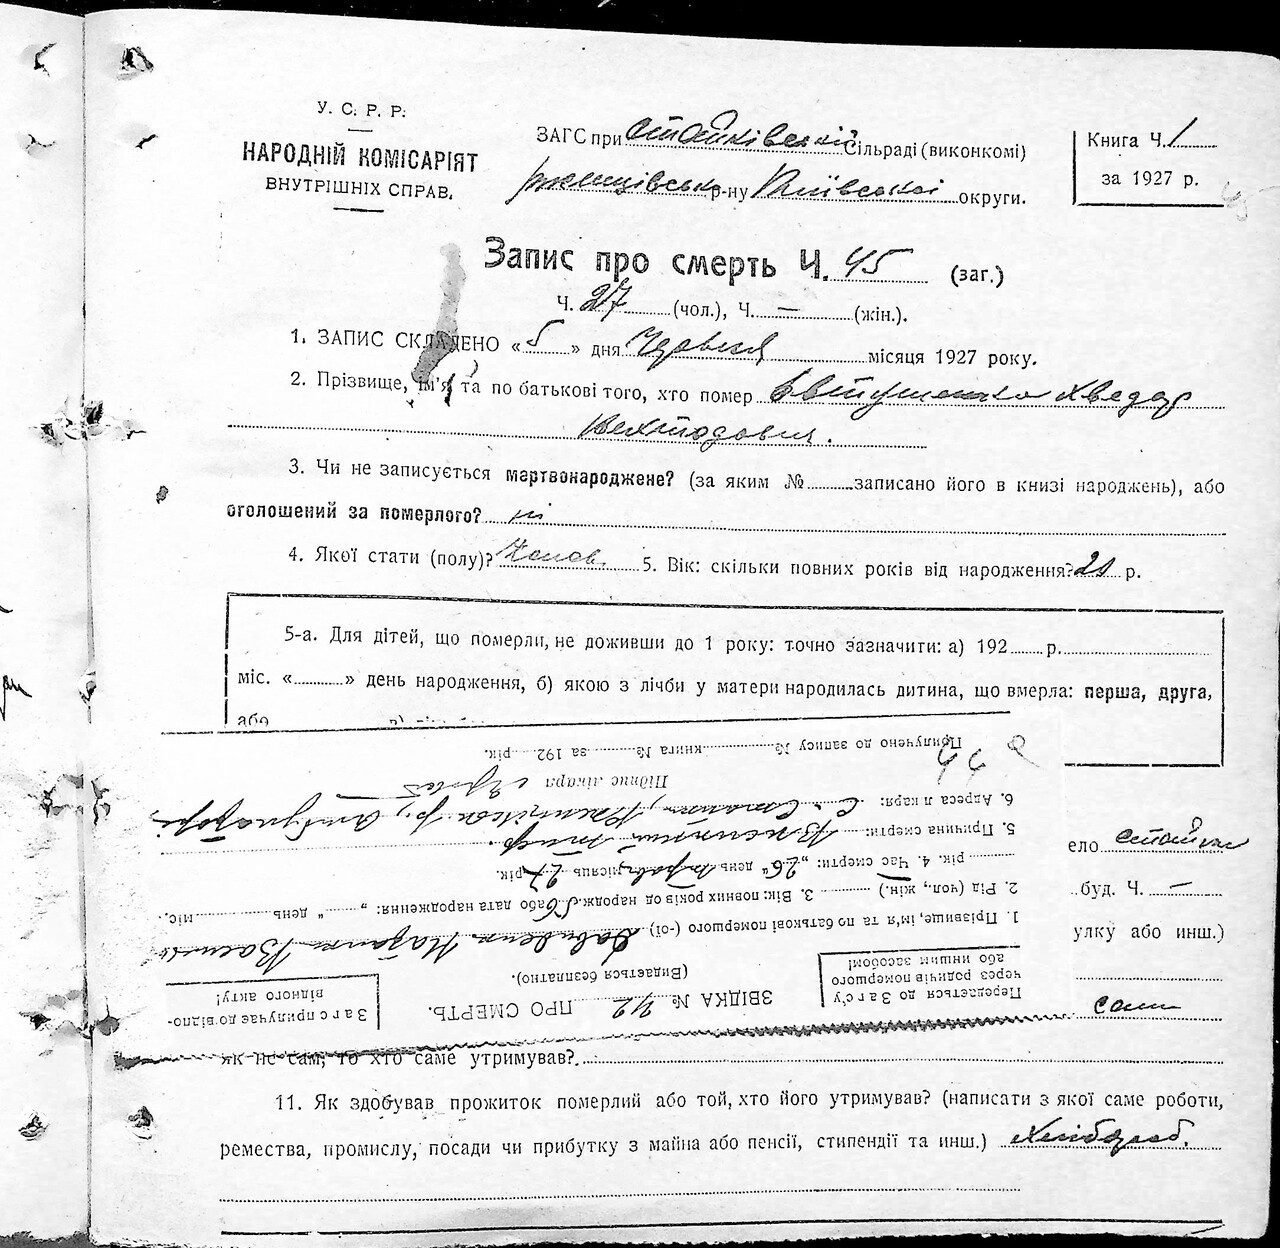 У. С. Р. Р.
НАРОДНІЙ КОМІСАРІЯТ
ВНУТРІШНІХ СПРАВ.
ЗАГС при Стайківській Сільраді (виконкомі)
Ржищівськ р-ну Київської округи.
Книга Ч. 1
за 1927 р.
45
Запис про смерть Ч. 45 (заг.)
Ч. 27 (чол.), Ч. — (жін.).
1. ЗАПИС СКЛАДЕНО «5» дня Червня місяця 1927 року.
2. Прізвище, ім'я та по батькові того, хто помер Євтушенко Хведор
3. Чи не записується мертвонароджене? (за яким № записано його в книзі народжень), або
оголошений за померлого? ні
4. Якої стати (полу)? Чолов. 5. Вік: скільки повних років від народження? 21 р.
5-а. Для дітей, що померли, не доживши до 1 року: точно зазначити: а) 192 р.
міс. « » день народження, б) якою з лічби у матери народилась дитина, що вмерла: перша, друга,
або
ело Стайки
буд. Ч. —
улку або инш.)
сам
Загс прилучає до відпо-
відного акту!
ЗВІДКА № 42 ПРО СМЕРТЬ.
(Видається безплатно).
Передається до Загс'у
через родичів помершого
або иншим засобом!
1. Прізвище, ім'я та по батькові помершого (-ої)
2. Рід (чол., жін.) 3. Вік: повних років од народж. 56 або дата народження: „ " день міс.
рік. 4. Час смерти: „26" день травн місяць 27 рік.
5. Причина смерти: тиф.
6. Адреса лікаря: с. Стайки,
Підпис лікаря
Прилучено до запису № книга № за 192 рік.
44
як не сам, то хто саме утримував?
11. Як здобував прожиток померлий або той, хто його утримував? (написати з якої саме роботи,
ремества, промислу, посади чи прибутку з майна або пенсії, стипендії та инш.) Хлібороб.